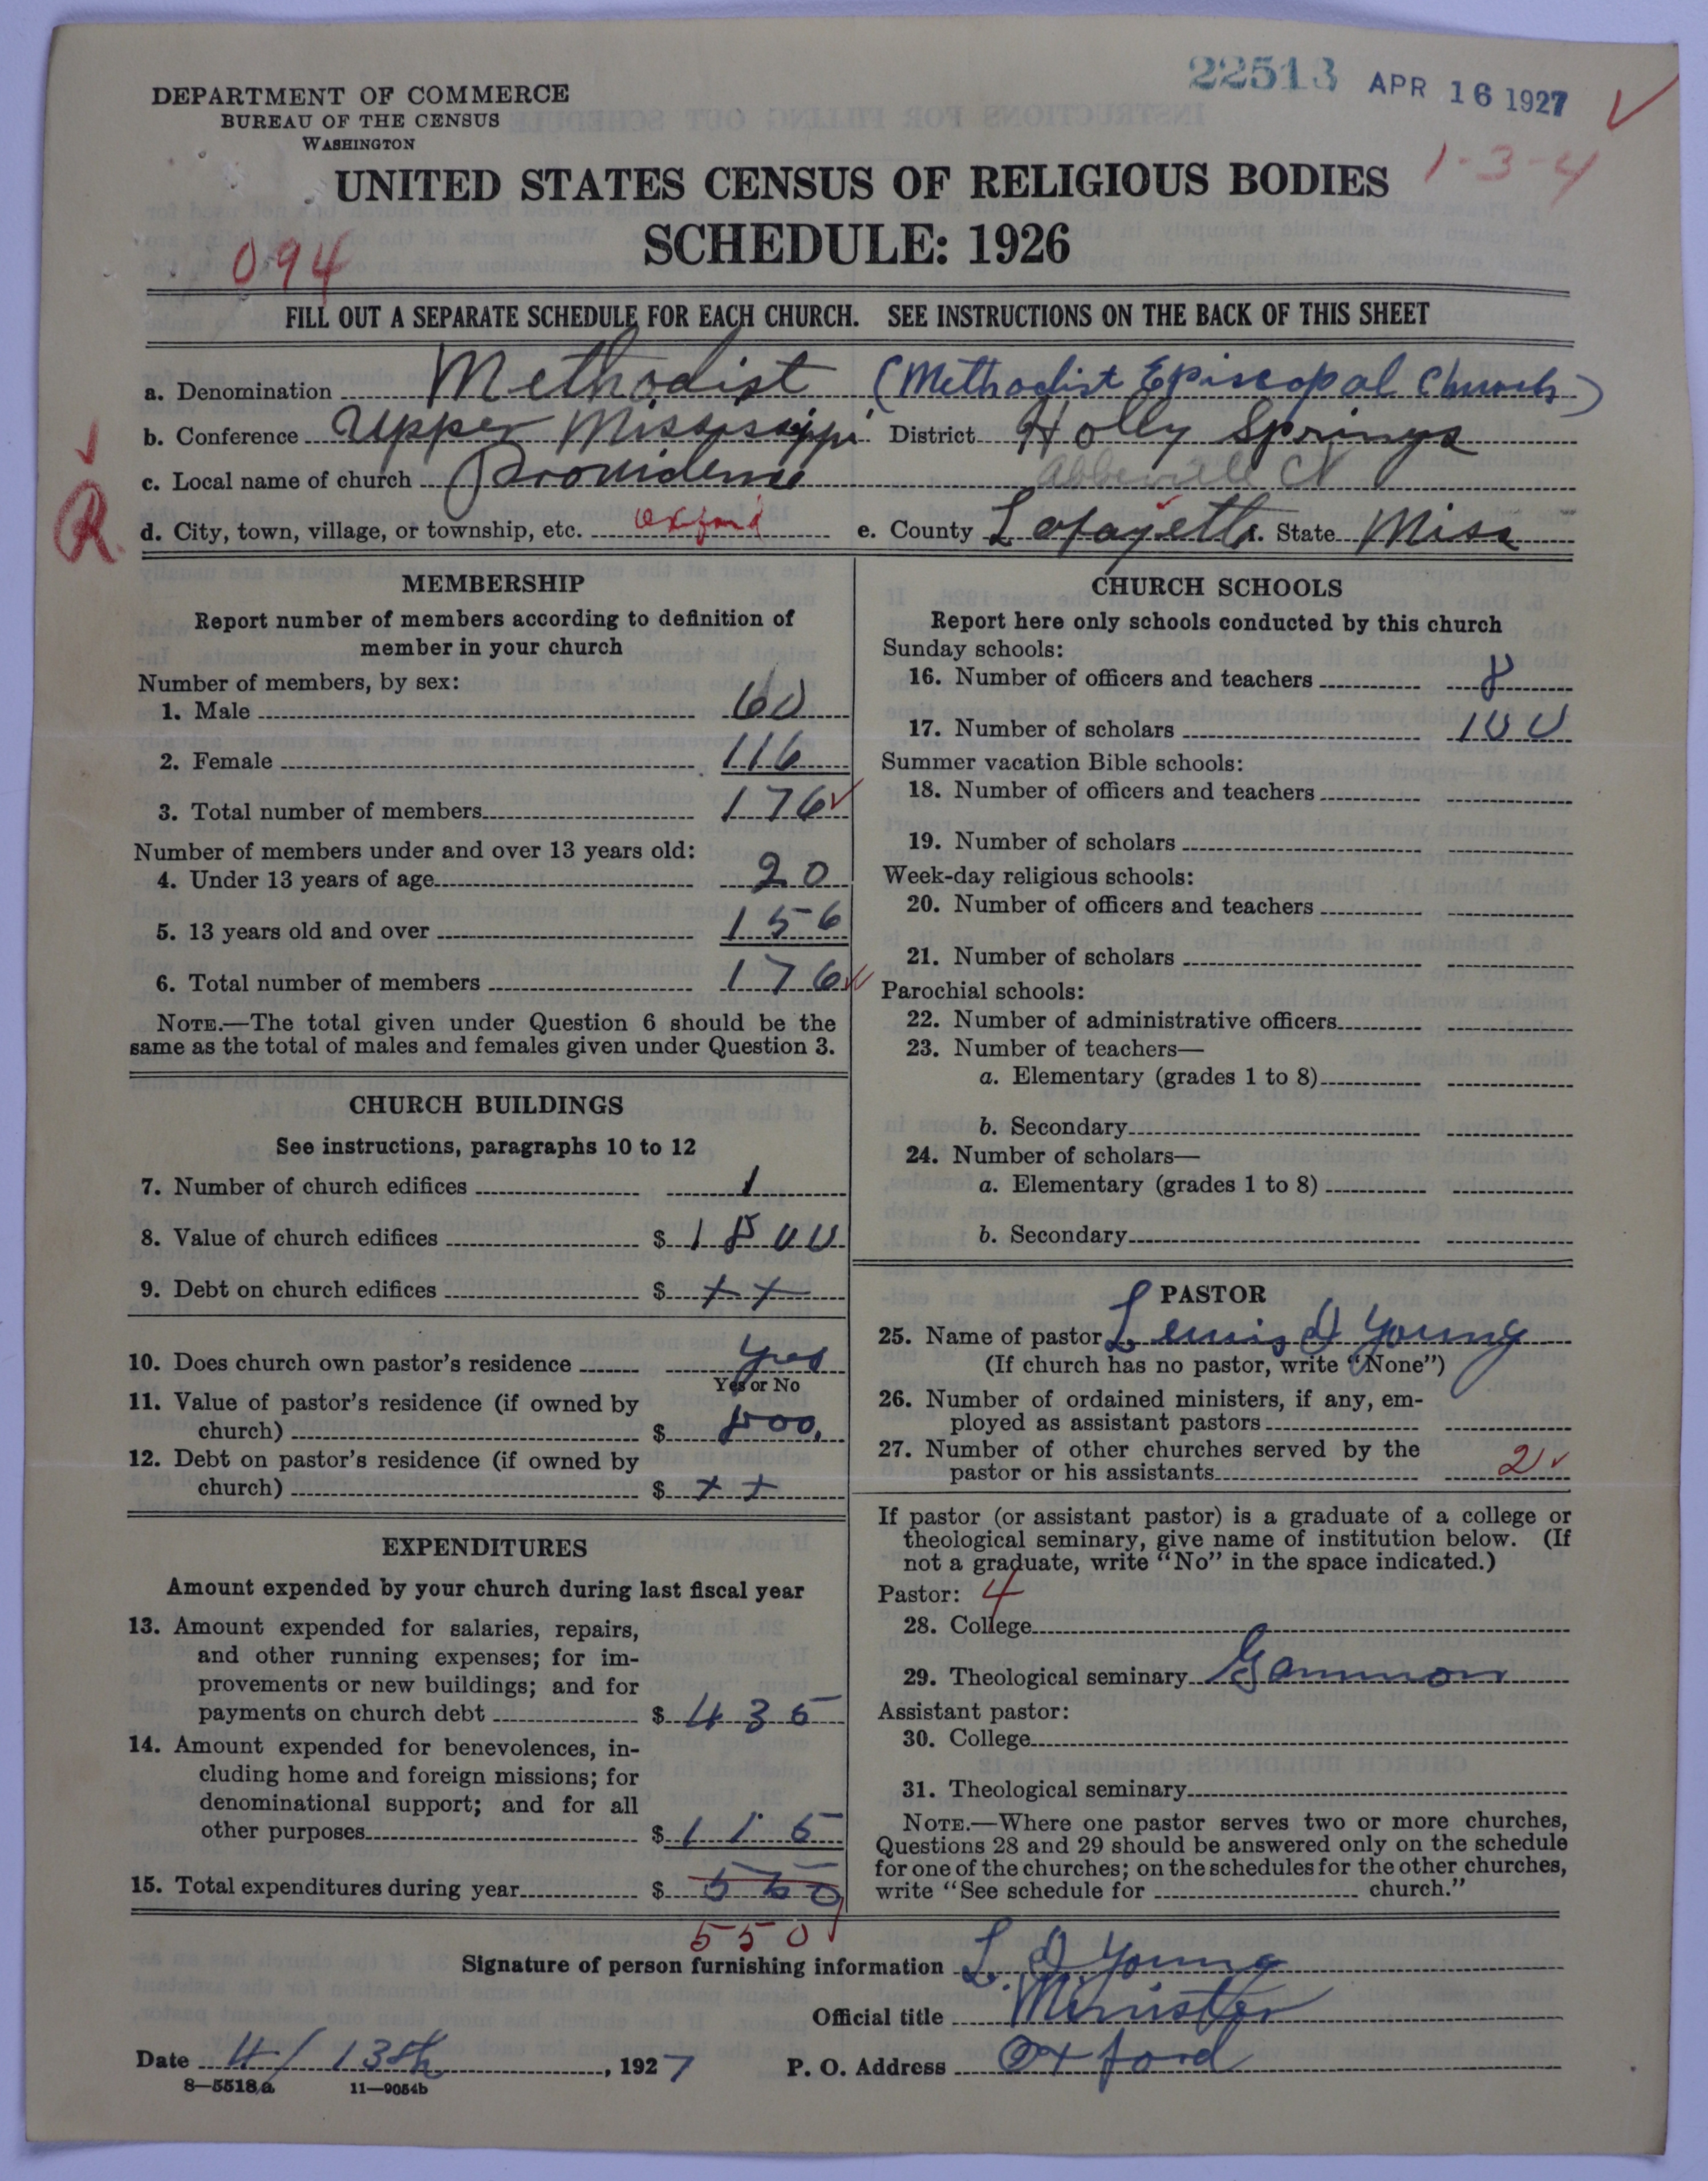 22513 APR 16 1927
DEPARTMENT OF COMMERCE
BUREAU OF THE CENSUS
WASHINGTON
1-3-4
UNITED STATES CENSUS OF RELIGIOUS BODIES
SCHEDULE: 1926
094
FILL OUT A SEPARATE SCHEDULE FOR EACH CHURCH. SEE INSTRUCTIONS ON THE BACK OF THIS SHEET
a. Denomination Methodist (Methodist Episcopal Church)
b. Conference Upper Mississippi District Holly Springs
c. Local name of church Providence Abbeville
R
d. City, town, village, or township, etc. Oxford e. County Lafayette f. State Miss
MEMBERSHIP
Report number of members according to definition of
member in your church
Number of members, by sex:
1. Male 60
2. Female 116
3. Total number of members 176
Number of members under and over 13 years old:
4. Under 13 years of age 20
5. 13 years old and over 156
6. Total number of members 176
NOTE.—The total given under Question 6 should be the
same as the total of males and females given under Question 3.
CHURCH BUILDINGS
See instructions, paragraphs 10 to 12
7. Number of church edifices 1
8. Value of church edifices $ 1800
9. Debt on church edifices $ ++
10. Does church own pastor's residence Yes
Yes or No
11. Value of pastor's residence (if owned by
church) $ 800.
12. Debt on pastor's residence (if owned by
church) $ ++
EXPENDITURES
Amount expended by your church during last fiscal year
13. Amount expended for salaries, repairs,
and other running expenses; for im-
provements or new buildings; and for
payments on church debt $ 435
14. Amount expended for benevolences, in-
cluding home and foreign missions; for
denominational support; and for all
other purposes $ 115
15. Total expenditures during year $
550
CHURCH SCHOOLS
Report here only schools conducted by this church
Sunday schools:
16. Number of officers and teachers 8
17. Number of scholars 100
Summer vacation Bible schools:
18. Number of officers and teachers
19. Number of scholars
Week-day religious schools:
20. Number of officers and teachers
21. Number of scholars
Parochial schools:
22. Number of administrative officers
23. Number of teachers—
a. Elementary (grades 1 to 8)
b. Secondary
24. Number of scholars—
a. Elementary (grades 1 to 8)
b. Secondary
PASTOR
25. Name of pastor Lewis D Young
(If church has no pastor, write "None")
26. Number of ordained ministers, if any, em-
ployed as assistant pastors
27. Number of other churches served by the
pastor or his assistants 2
If pastor (or assistant pastor) is a graduate of a college or
theological seminary, give name of institution below. (If
not a graduate, write "No" in the space indicated.)
Pastor: 4
28. College
29. Theological seminary Gammon
Assistant pastor:
30. College
31. Theological seminary
NOTE.—Where one pastor serves two or more churches,
Questions 28 and 29 should be answered only on the schedule
for one of the churches; on the schedules for the other churches,
write "See schedule for church."
Signature of person furnishing information L. D Young
Official title Minister
Date 4/13th, 1927 P. O. Address Oxford
8—5518a 11—9054b